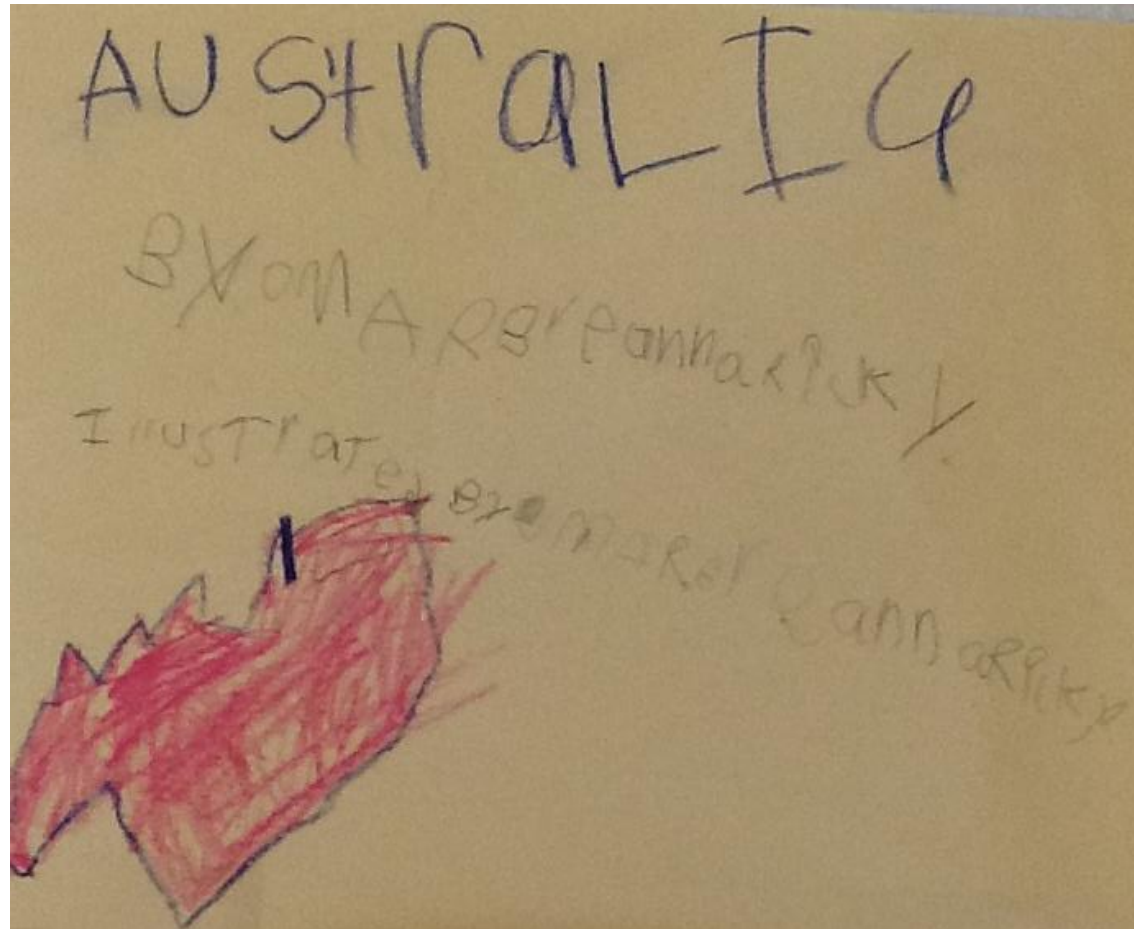 AUStraLIa
BY omAR Breanna RickY
IllusTraTed BY omaR Breanna Ricky